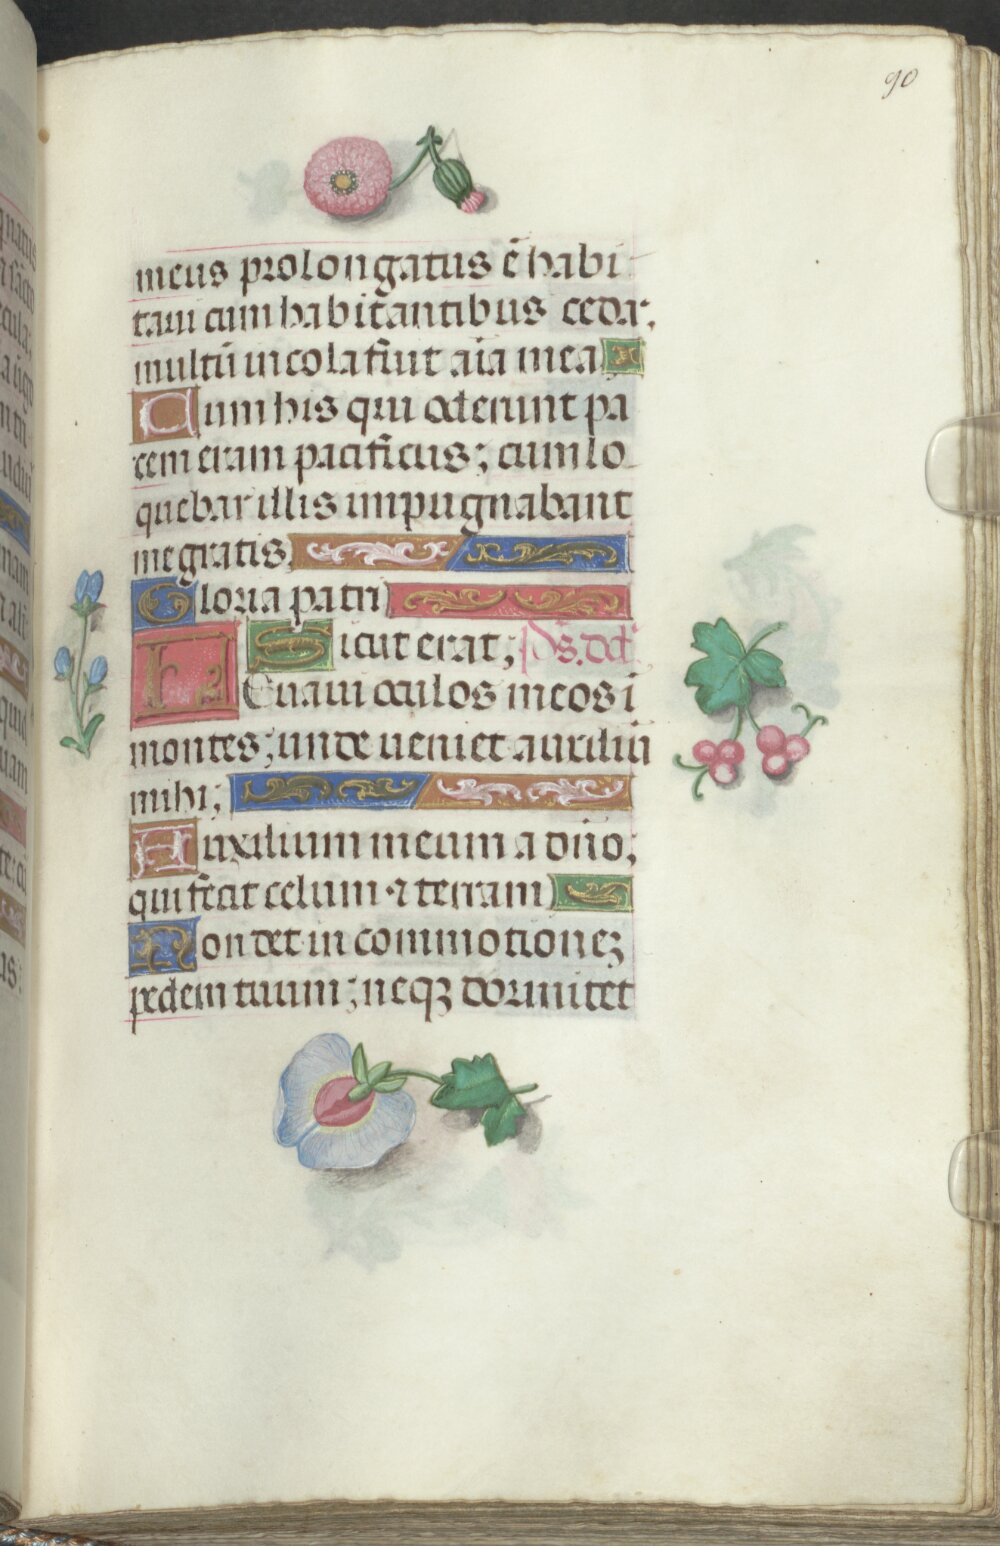 90
meus prolongatus ē habi
taui cum habitantibus cedar;
multū incola fuit aīa mea
Cum his qui oderunt pa
cem eram pacificus; cum lo
quebar illis impugnabant
me gratis
Gloria patri
Sicut erat; Ps. dd
Leuaui oculos meos ī
montes; unde ueniet auxiliū
mihi;
Auxilium meum a dño;
qui fecit celum ⁊ terram
Non det in commotioneꝫ
pedem tuum; neqꝫ dormitet